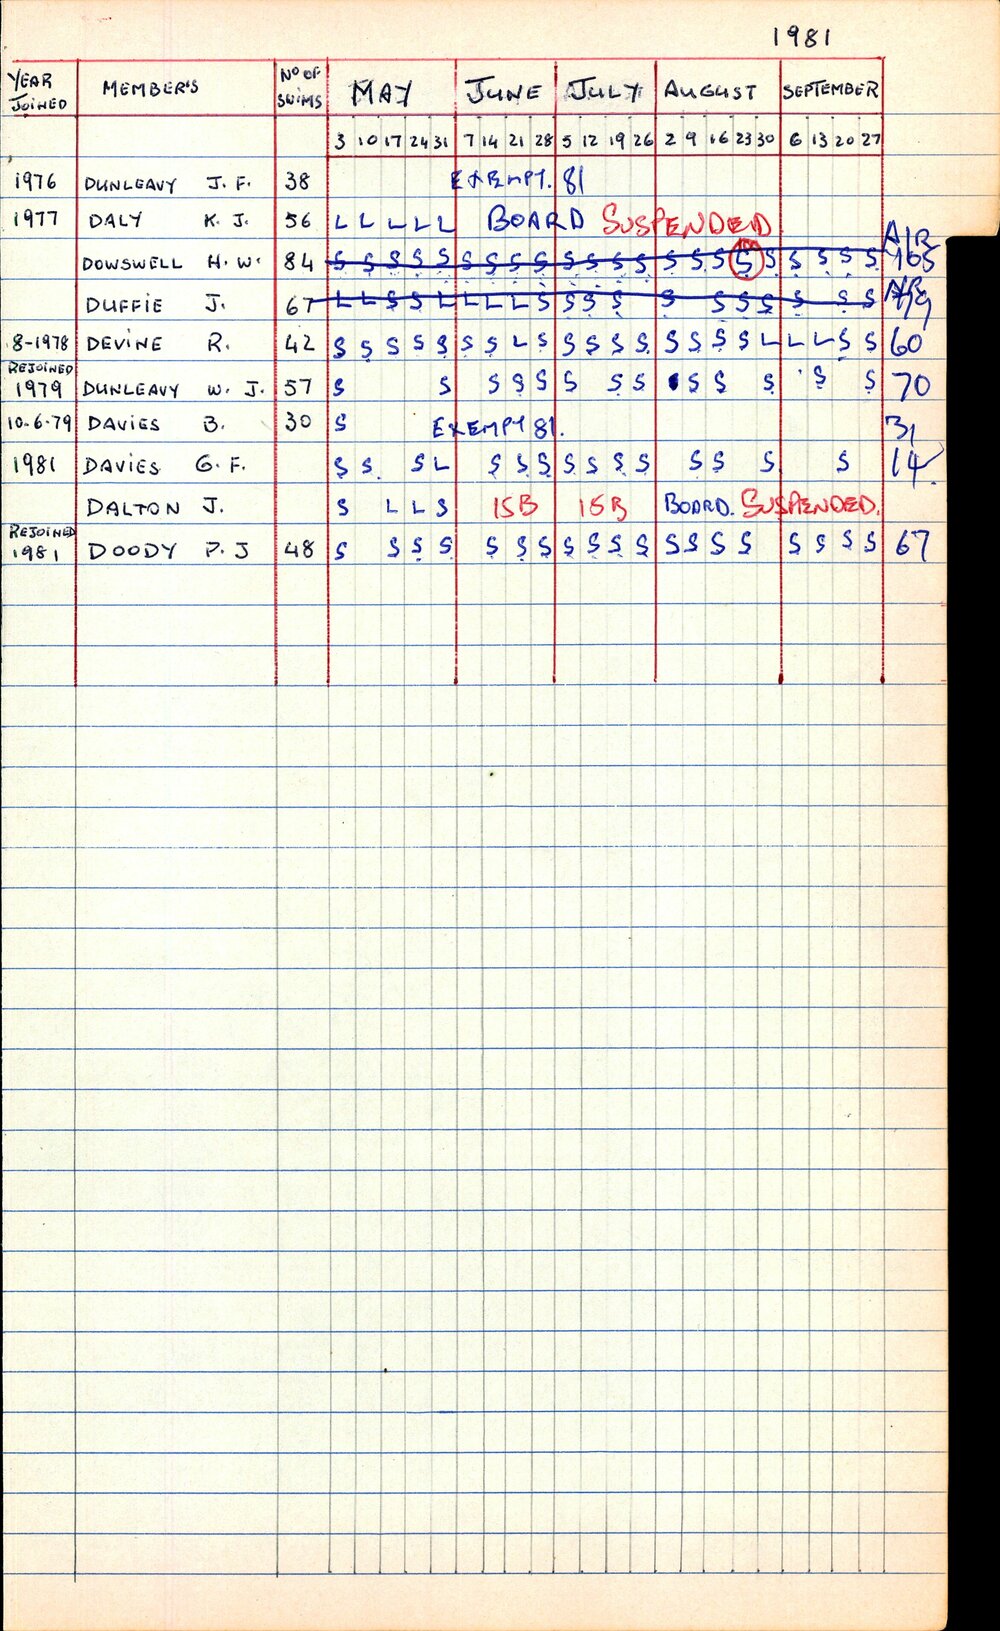 1981
YEAR JOINED MEMBER'S Nº OF SWIMS MAY JUNE JULY AUGUST SEPTEMBER
3 10 17 24 31 7 14 21 28 5 12 19 26 2 9 16 23 30 6 13 20 27
1976 DUNLEAVY J. F. 38 EXEMPT. 81
1977 DALY K. J. 56 L L L L L BOARD SUSPENDED
DOWSWELL H. W. 84 S S S S S S S S S S S S S S S S S S S S S S A/R
DUFFIE J. 67 L L S S L L L L S S S S S S S S S S S
8-1978 DEVINE R. 42 S S S S S S S L S S S S S S S S S L L L S S 60
REJOINED
1979 DUNLEAVY W. J. 57 S S S S S S S S S S S S S 70
10-6-79 DAVIES B. 30 S EXEMPT 81. 31
1981 DAVIES G. F. S S S L S S S S S S S S S S S 14
DALTON J. S L L S ISB ISB BOARD. SUSPENDED.
REJOINED
1981 DOODY P. J 48 S S S S S S S S S S S S S S S S S S S 67